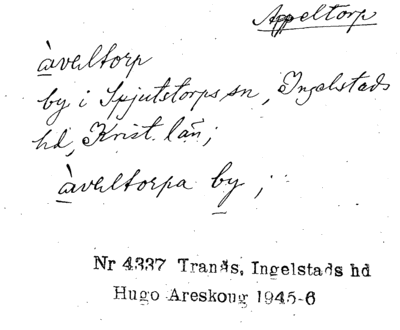 Appeltorp
àveltorp
by i Spjutstorps sn, Ingelstads
hd, Krist. län;
àveltorpa by;
Nr 4337 Tranås, Ingelstads hd
Hugo Areskoug 1945-6